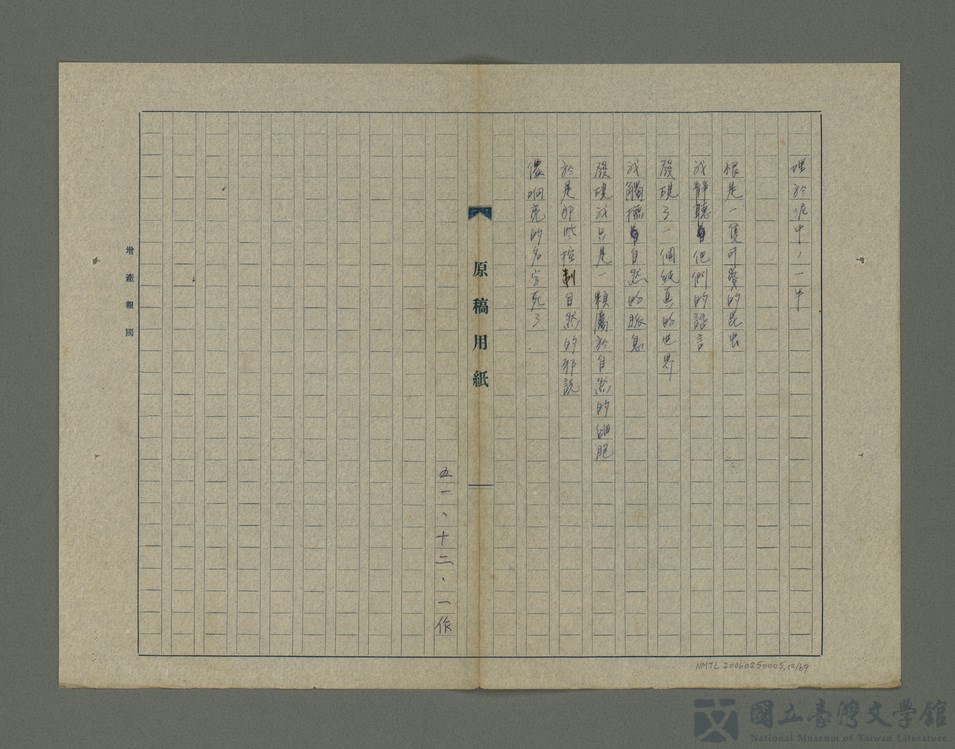 埋於泥中，一半
根是一隻可愛的昆虫
我靜聽着他們的諾言
發現了一個純真的世界
我觸摸着自然的脈息
發現我只是一顆屬於自然的細胞
於是那些控制自然的邪說
像啊死的名字死了
五一、十二、一作
原稿用紙
增產報國
NMTL 20060250005,12/69
國立臺灣文學館
National Museum of Taiwan Literature